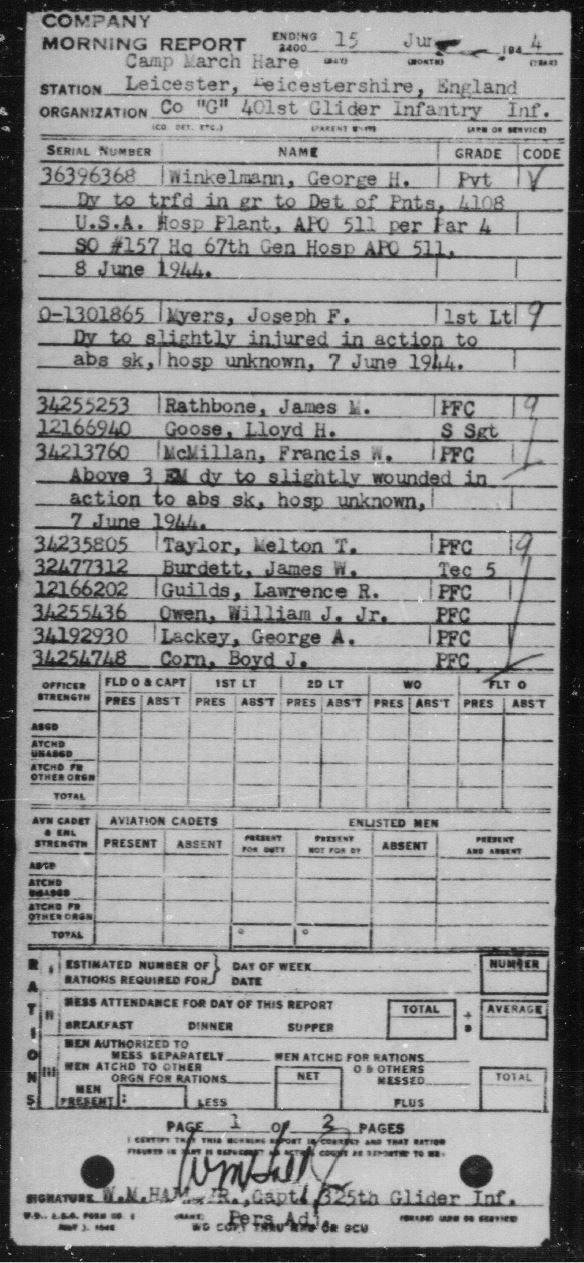 COMPANY
MORNING REPORT ENDING 2400 15 Jun 1944
(DAY) (MONTH) (YEAR)
Camp March Hare
STATION Leicester, Leicestershire, England
ORGANIZATION Co "G" 401st Glider Infantry Inf.
(CO. DET. ETC.) (PARENT UNIT) (ARM OR SERVICE)
SERIAL NUMBER NAME GRADE CODE
36396368 Winkelmann, George H. Pvt V
Dy to trfd in gr to Det of Pnts, 4108
U.S.A. Hosp Plant, APO 511 per Par 4
SO #157 Hq 67th Gen Hosp APO 511,
8 June 1944.
O-1301865 Myers, Joseph F. 1st Lt 9
Dy to slightly injured in action to
abs sk, hosp unknown, 7 June 1944.
34255253 Rathbone, James M. PFC 9
12166940 Goose, Lloyd H. S Sgt
34213760 McMillan, Francis W. PFC
Above 3 EM dy to slightly wounded in
action to abs sk, hosp unknown,
7 June 1944.
34235805 Taylor, Melton T. PFC 9
32477312 Burdett, James W. Tec 5
12166202 Guilds, Lawrence R. PFC
34255436 Owen, William J. Jr. PFC
34192930 Lackey, George A. PFC
34254748 Corn, Boyd J. PFC
OFFICER STRENGTH FLD O & CAPT 1ST LT 2D LT WO FLT O
PRES ABS'T PRES ABS'T PRES ABS'T PRES ABS'T PRES ABS'T
ASGD
ATCHD UNASGD
ATCHD FR OTHER ORGN
TOTAL
AVN CADET & ENL STRENGTH AVIATION CADETS ENLISTED MEN
PRESENT ABSENT PRESENT FOR DUTY PRESENT NOT FOR DY ABSENT PRESENT AND ABSENT
ASGD
ATCHD UNASGD
ATCHD FR OTHER ORGN
TOTAL
RATIONS
I ESTIMATED NUMBER OF RATIONS REQUIRED FOR } DAY OF WEEK NUMBER
DATE
II MESS ATTENDANCE FOR DAY OF THIS REPORT TOTAL AVERAGE
BREAKFAST DINNER SUPPER
III MEN AUTHORIZED TO MESS SEPARATELY MEN ATCHD FOR RATIONS
MEN ATCHD TO OTHER ORGN FOR RATIONS NET O & OTHERS MESSED TOTAL
MEN PRESENT: LESS PLUS
PAGE 1 OF 2 PAGES
I CERTIFY THAT THIS MORNING REPORT IS CORRECT AND THAT RATION
SIGNATURE W.M. HALL, JR., Capt, 325th Glider Inf.
(NAME) (GRADE) (ARM OR SERVICE)
Pers Adj.